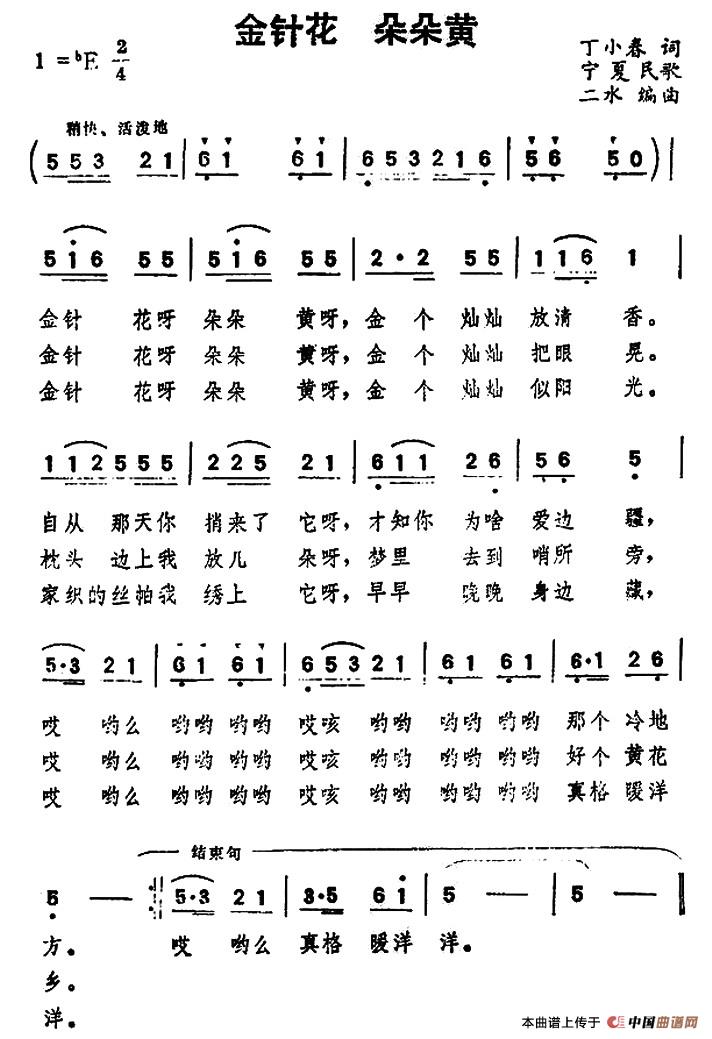 金针花 朵朵黄
1=ᵇE 2/4
丁小春 词
宁夏民歌
二水 编曲
稍快、活泼地
(5 5 3 2 1 | 6 1 6 1 | 6 5 3 2 1 6 | 5 6 5 0) |
5 i 6 5 5 | 5 i 6 5 5 | 2 · 2 5 5 | 1 1 6 1 |
金针 花呀 朵朵 黄呀，金 个 灿灿 放清 香。
金针 花呀 朵朵 黄呀，金 个 灿灿 把眼 晃。
金针 花呀 朵朵 黄呀，金 个 灿灿 似阳 光。
1 1 2 5 5 5 5 | 2 2 5 2 1 | 6 1 1 2 6 | 5 6 5 |
自从 那天你 捎来了 它呀，才知你 为啥 爱边 疆，
枕头 边上我 放几 朵呀，梦里 去到 哨所 旁，
家织的丝帕我 绣上 它呀，早早 晚晚 身边 藏，
5·3 2 1 | 6 1 6 1 | 6 5 3 2 1 | 6 1 6 1 | 6·1 2 6 |
哎 哟么 哟哟 哟哟 哎咳 哟哟 哟哟 哟哟 那个 冷地
哎 哟么 哟哟 哟哟 哎咳 哟哟 哟哟 哟哟 好个 黄花
哎 哟么 哟哟 哟哟 哎咳 哟哟 哟哟 哟哟 真格 暖洋
结束句
5 — :‖ 5·3 2 1 | 3·5 6 i | 5 — | 5 — ‖
方。 哎 哟么 真格 暖洋 洋。
乡。
洋。
本曲谱上传于 中国曲谱网